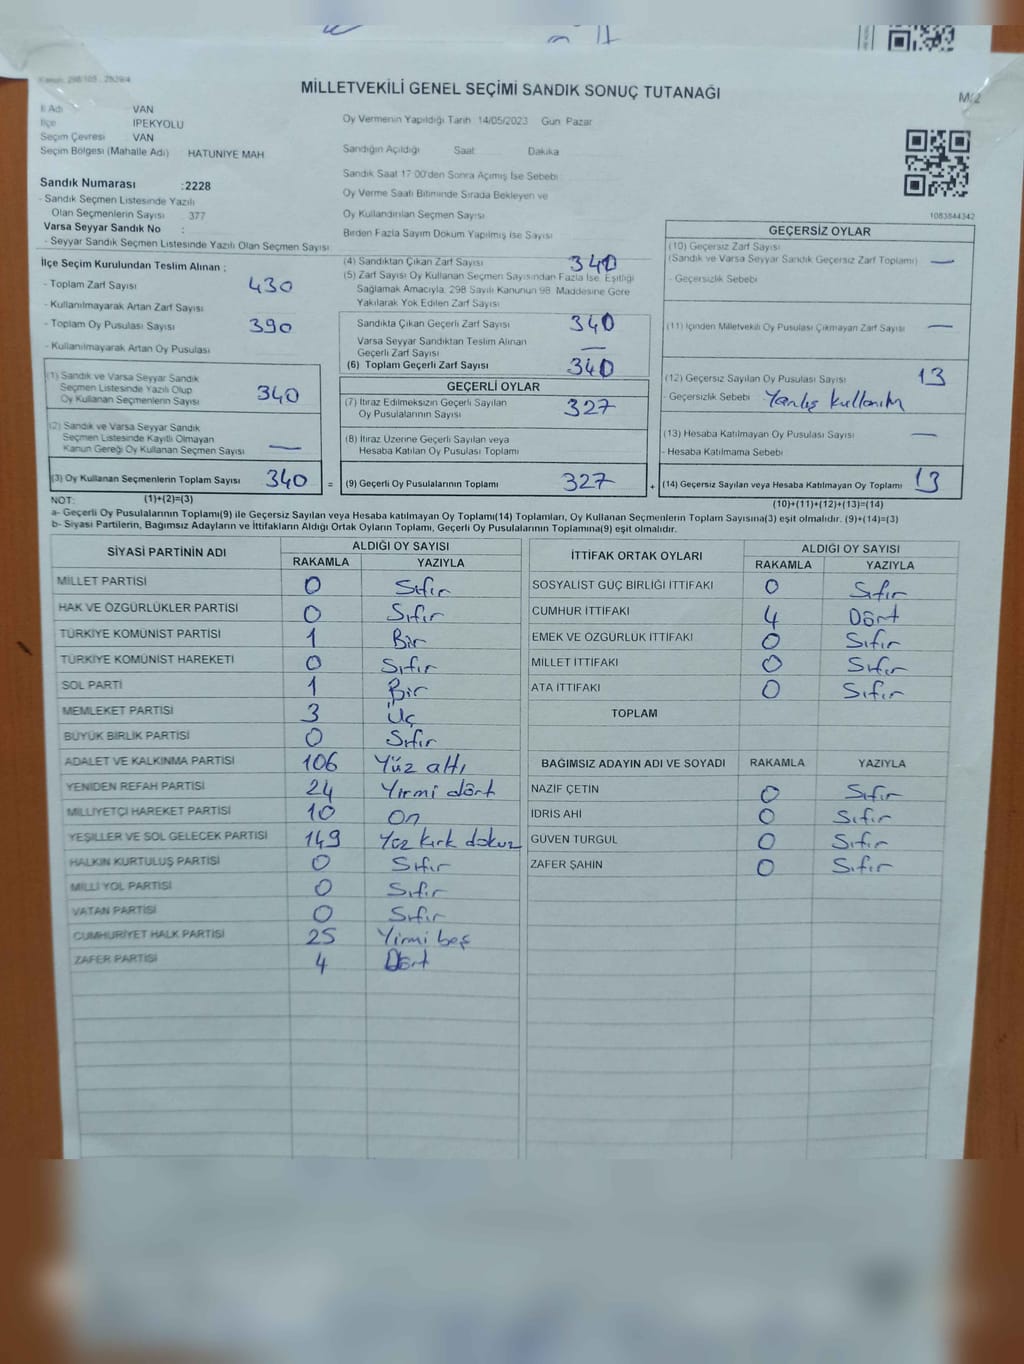 Kanun: 298/105 , 2839/4
MİLLETVEKİLİ GENEL SEÇİMİ SANDIK SONUÇ TUTANAĞI
M/2
İl Adı VAN
İlçe İPEKYOLU
Seçim Çevresi VAN
Seçim Bölgesi (Mahalle Adı) HATUNİYE MAH
Oy Vermenin Yapıldığı Tarih 14/05/2023 Gün Pazar
Sandığın Açıldığı Saat Dakika
Sandık Saat 17 00'den Sonra Açımış İse Sebebi
Oy Verme Saati Bitiminde Sırada Bekleyen ve
Oy Kullandırılan Seçmen Sayısı
Birden Fazla Sayım Döküm Yapılmış İse Sayısı
1083844342
Sandık Numarası :2228
- Sandık Seçmen Listesinde Yazılı
Olan Seçmenlerin Sayısı 377
Varsa Seyyar Sandık No :
- Seyyar Sandık Seçmen Listesinde Yazılı Olan Seçmen Sayısı
İlçe Seçim Kurulundan Teslim Alınan :
- Toplam Zarf Sayısı 430
- Kullanılmayarak Artan Zarf Sayısı
- Toplam Oy Pusulası Sayısı 390
- Kullanılmayarak Artan Oy Pusulası
(1) Sandık ve Varsa Seyyar Sandık
Seçmen Listesinde Yazılı Olup
Oy Kullanan Seçmenlerin Sayısı 340
(2) Sandık ve Varsa Seyyar Sandık
Seçmen Listesinde Kayıtlı Olmayan
Kanun Gereği Oy Kullanan Seçmen Sayısı —
(3) Oy Kullanan Seçmenlerin Toplam Sayısı 340 =
(4) Sandıktan Çıkan Zarf Sayısı 340
(5) Zarf Sayısı Oy Kullanan Seçmen Sayısından Fazla İse, Eşitliği
Sağlamak Amacıyla, 298 Sayılı Kanunun 98. Maddesine Göre
Yakılarak Yok Edilen Zarf Sayısı
Sandıkta Çıkan Geçerli Zarf Sayısı 340
Varsa Seyyar Sandıktan Teslim Alınan
Geçerli Zarf Sayısı —
(6) Toplam Geçerli Zarf Sayısı 340
GEÇERLİ OYLAR
(7) İtiraz Edilmeksizin Geçerli Sayılan
Oy Pusulalarının Sayısı 327
(8) İtiraz Üzerine Geçerli Sayılan veya
Hesaba Katılan Oy Pusulası Toplamı
(9) Geçerli Oy Pusulalarının Toplamı 327 +
GEÇERSİZ OYLAR
(10) Geçersiz Zarf Sayısı
(Sandık ve Varsa Seyyar Sandık Geçersiz Zarf Toplamı) —
- Geçersizlik Sebebi
(11) İçinden Milletvekili Oy Pusulası Çıkmayan Zarf Sayısı —
(12) Geçersiz Sayılan Oy Pusulası Sayısı 13
- Geçersizlik Sebebi Yanlış kullanım
(13) Hesaba Katılmayan Oy Pusulası Sayısı —
- Hesaba Katılmama Sebebi
(14) Geçersiz Sayılan veya Hesaba Katılmayan Oy Toplamı 13
NOT: (1)+(2)=(3) (10)+(11)+(12)+(13)=(14)
a- Geçerli Oy Pusulalarının Toplamı(9) ile Geçersiz Sayılan veya Hesaba Katılmayan Oy Toplamı(14) Toplamları, Oy Kullanan Seçmenlerin Toplam Sayısına(3) eşit olmalıdır. (9)+(14)=(3)
b- Siyasi Partilerin, Bağımsız Adayların ve İttifakların Aldığı Ortak Oyların Toplamı, Geçerli Oy Pusulalarının Toplamına(9) eşit olmalıdır.
SİYASİ PARTİNİN ADI ALDIĞI OY SAYISI
RAKAMLA YAZIYLA
MİLLET PARTİSİ 0 Sıfır
HAK VE ÖZGÜRLÜKLER PARTİSİ 0 Sıfır
TÜRKİYE KOMÜNİST PARTİSİ 1 Bir
TÜRKİYE KOMÜNİST HAREKETİ 0 Sıfır
SOL PARTİ 1 Bir
MEMLEKET PARTİSİ 3 Üç
BÜYÜK BİRLİK PARTİSİ 0 Sıfır
ADALET VE KALKINMA PARTİSİ 106 Yüz altı
YENİDEN REFAH PARTİSİ 24 Yirmi dört
MİLLİYETÇİ HAREKET PARTİSİ 10 On
YEŞİLLER VE SOL GELECEK PARTİSİ 149 Yüz kırk dokuz
HALKIN KURTULUŞ PARTİSİ 0 Sıfır
MİLLİ YOL PARTİSİ 0 Sıfır
VATAN PARTİSİ 0 Sıfır
CUMHURİYET HALK PARTİSİ 25 Yirmi beş
ZAFER PARTİSİ 4 Dört
İTTİFAK ORTAK OYLARI ALDIĞI OY SAYISI
RAKAMLA YAZIYLA
SOSYALİST GÜÇ BİRLİĞİ İTTİFAKI 0 Sıfır
CUMHUR İTTİFAKI 4 Dört
EMEK VE ÖZGÜRLÜK İTTİFAKI 0 Sıfır
MİLLET İTTİFAKI 0 Sıfır
ATA İTTİFAKI 0 Sıfır
TOPLAM
BAĞIMSIZ ADAYIN ADI VE SOYADI RAKAMLA YAZIYLA
NAZİF ÇETİN 0 Sıfır
İDRİS AHİ 0 Sıfır
GÜVEN TURGUL 0 Sıfır
ZAFER ŞAHİN 0 Sıfır